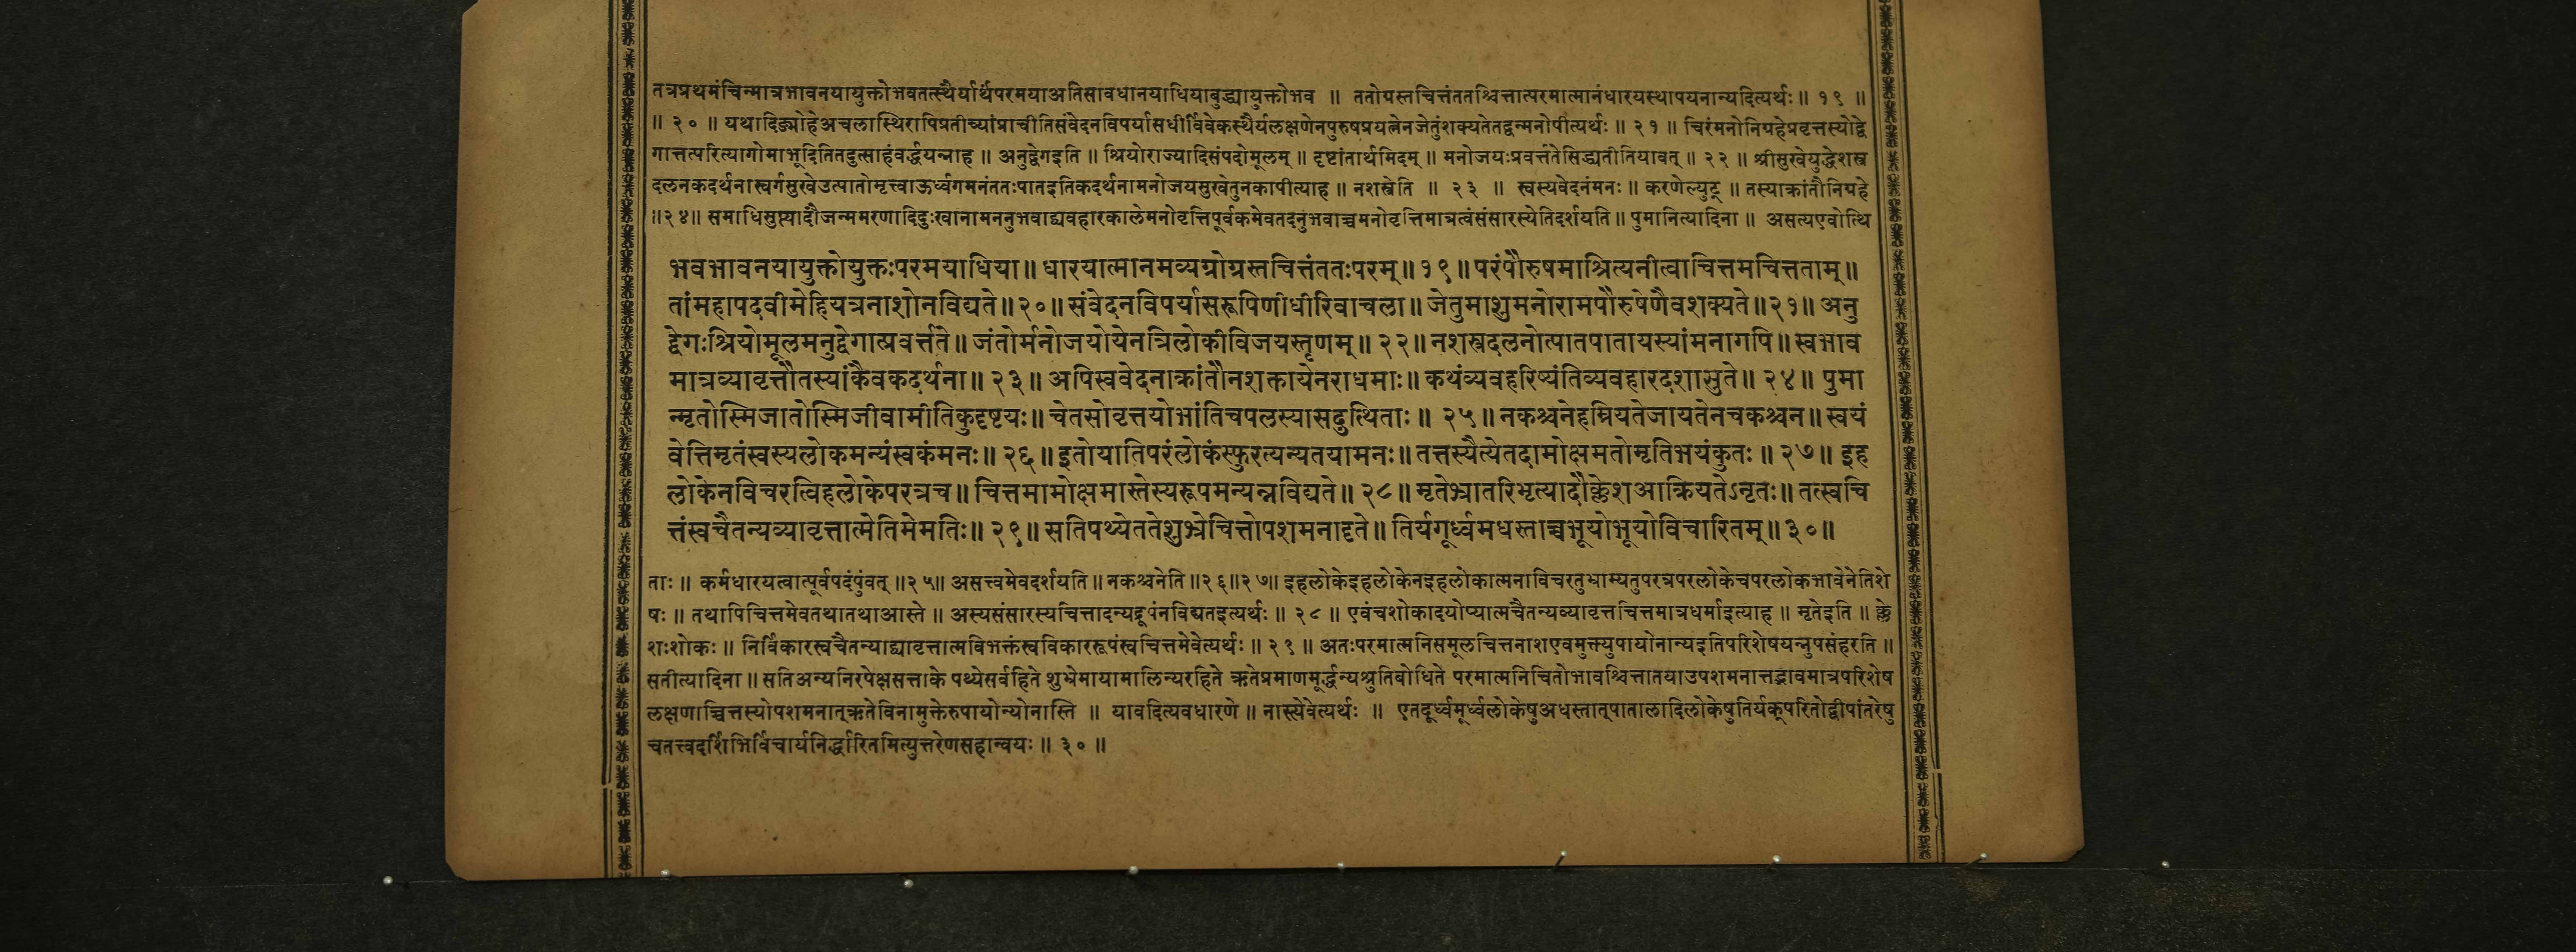 तत्रप्रथमंचिन्मात्रभावनयायुक्तोभवतत्स्थैर्यार्थंपरमयाअतिसावधानयाधियाबुद्ध्यायुक्तोभव ॥ ततोग्रस्तचित्तंततश्चित्तात्परमात्मानंधारयस्थापयनान्यदित्यर्थः ॥ १९ ॥
॥ २० ॥ यथादिङ्मोहेअचलास्थिरापिप्रतीच्यांप्राचीतिसंवेदनविपर्यासधीर्विवेकस्थैर्यलक्षणेनपुरुषप्रयत्नेनजेतुंशक्यतेतद्वन्मनोपीत्यर्थः ॥ २१ ॥ चिरंमनोनिग्रहेप्रवृत्तस्योद्वे
गात्तत्परित्यागोमाभूदितितदुत्साहंवर्द्धयन्नाह ॥ अनुद्वेगइति ॥ श्रियोराज्यादिसंपदोमूलम् ॥ दृष्टांतार्थमिदम् ॥ मनोजयःप्रवर्त्ततेसिद्ध्यतीतियावत् ॥ २२ ॥ श्रीसुखेयुद्धेशस्त्र
दलनकदर्थनास्वर्गसुखेउत्पातोमृत्त्वाऊर्ध्वगमनंततःपातइतिकदर्थनामनोजयसुखेतुनकापीत्याह ॥ नशस्त्रेति ॥ २३ ॥ स्वस्यवेदनंमनः ॥ करणेल्युट् ॥ तस्याक्रांतौनिग्रहे
॥२४॥ समाधिसुप्त्यादौजन्ममरणादिदुःखानामननुभवाद्व्यवहारकालेमनोवृत्तिपूर्वकमेवतदनुभवाच्चमनोवृत्तिमात्रत्वंसंसारस्येतिदर्शयति ॥ पुमानित्यादिना ॥ असत्यएवोत्थि
भवभावनयायुक्तोयुक्तःपरमयाधिया॥ धारयात्मानमव्यग्रोग्रस्तचित्तंततःपरम्॥ १९॥ परंपौरुषमाश्रित्यनीत्वाचित्तमचित्तताम्॥
तांमहापदवीमेहियत्रनाशोनविद्यते॥ २०॥ संवेदनविपर्यासरूपिणीधीरिवाचला॥ जेतुमाशुमनोरामपौरुषेणैवशक्यते॥ २१॥ अनु
द्वेगःश्रियोमूलमनुद्वेगात्प्रवर्त्तते॥ जंतोर्मनोजयोयेनत्रिलोकीविजयस्तृणम्॥ २२॥ नशस्त्रदलनोत्पातपातायस्यांमनागपि॥ स्वभाव
मात्रव्यावृत्तौतस्यांकैवकदर्थना॥ २३॥ अपिस्ववेदनाक्रांतौनशक्तायेनराधमाः॥ कथंव्यवहरिष्यंतिव्यवहारदशासुते॥ २४॥ पुमा
न्मृतोस्मिजातोस्मिजीवामीतिकुदृष्टयः॥ चेतसोवृत्तयोभांतिचपलस्यासदुत्थिताः॥ २५॥ नकश्चनेहम्रियतेजायतेनचकश्चन॥ स्वयं
वेत्तिमृतंस्वस्यलोकमन्यंस्वकंमनः॥ २६॥ इतोयातिपरंलोकंस्फुरत्यन्यतयामनः॥ तत्तस्यैत्येतदामोक्षमतोमृतिभयंकुतः॥ २७॥ इह
लोकेनविचरत्विहलोकेपरत्रच॥ चित्तमामोक्षमास्तेस्यरूपमन्यन्नविद्यते॥ २८॥ मृतेभ्रातरिभृत्यादौक्लेशआक्रियतेऽनृतः॥ तत्स्वचि
त्तंस्वचैतन्यव्यावृत्तात्मेतिमेमतिः॥ २९॥ सतिपथ्येततेशुभ्रेचित्तोपशमनादृते॥ तिर्यगूर्ध्वमधस्ताच्चभूयोभूयोविचारितम्॥ ३०॥
ताः ॥ कर्मधारयत्वात्पूर्वपदंपुंवत् ॥२५॥ असत्त्वमेवदर्शयति ॥ नकश्चनेति ॥२६॥२७॥ इहलोकेइहलोकेनइहलोकात्मनाविचरतुभ्राम्यतुपरत्रपरलोकेचपरलोकभावेनेतिशे
षः ॥ तथापिचित्तमेवतथातथाआस्ते ॥ अस्यसंसारस्यचित्तादन्यद्रूपंनविद्यतइत्यर्थः ॥ २८ ॥ एवंचशोकादयोप्यात्मचैतन्यव्यावृत्तचित्तमात्रधर्माइत्याह ॥ मृतेइति ॥ क्ले
शःशोकः ॥ निर्विकारस्वचैतन्याद्व्यावृत्तात्मविभक्तंस्वविकाररूपंस्वचित्तमेवेत्यर्थः ॥ २९ ॥ अतःपरमात्मनिसमूलचित्तनाशएवमुक्त्युपायोनान्यइतिपरिशेषयन्नुपसंहरति ॥
सतीत्यादिना ॥ सतिअन्यनिरपेक्षसत्ताके पथ्येसर्वहिते शुभ्रेमायामालिन्यरहिते ऋतेप्रमाणमूर्द्धन्यश्रुतिबोधिते परमात्मनिचितोभावश्चित्तातयाउपशमनात्तद्भावमात्रपरिशेष
लक्षणाच्चित्तस्योपशमनात्ऋतेविनामुक्तेरुपायोन्योनास्ति ॥ यावदित्यवधारणे ॥ नास्त्येवेत्यर्थः ॥ एतदूर्ध्वमूर्ध्वलोकेषुअधस्तात्पातालादिलोकेषुतिर्यक्परितोद्वीपांतरेषु
चतत्त्वदर्शिभिर्विचार्यनिर्द्धारितमित्युत्तरेणसहान्वयः ॥ ३० ॥